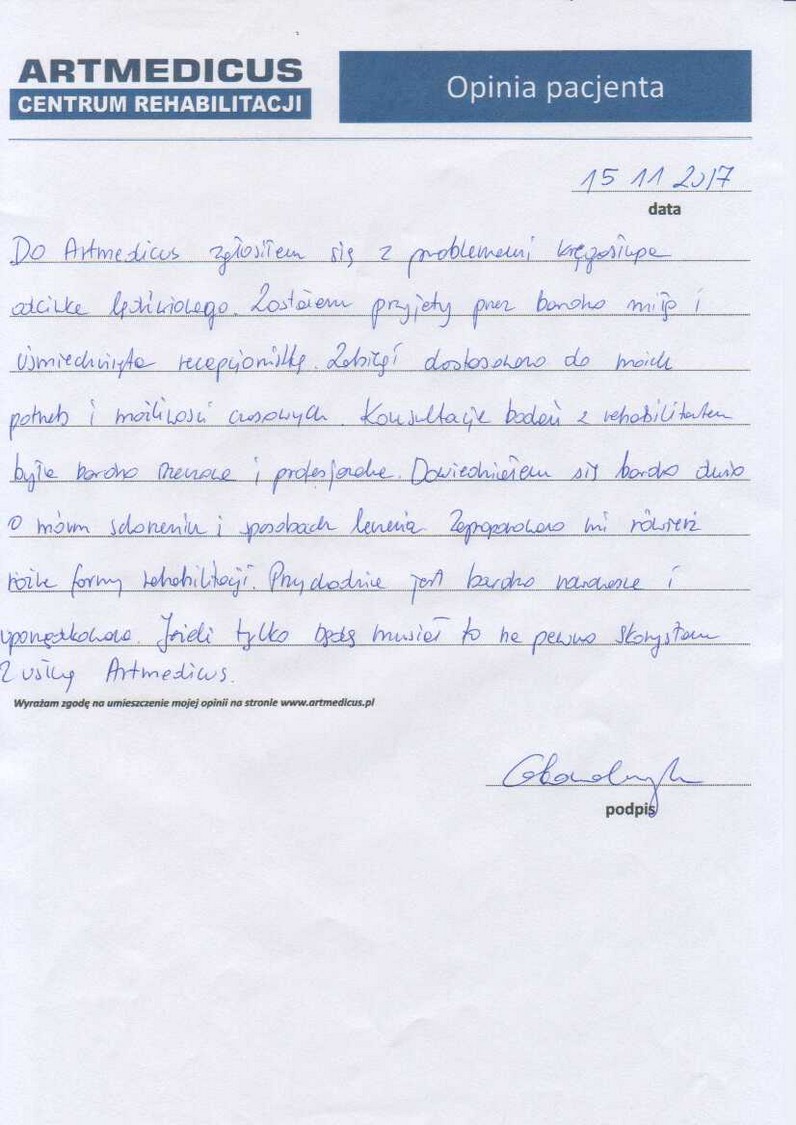 ARTMEDICUS
CENTRUM REHABILITACJI
Opinia pacjenta
15 11 2017
data
Do Artmedicus zgłosiłem się z problemami kręgosłupa
odcinka lędźwiowego. Zostałem przyjęty przez bardzo miłą i
uśmiechniętą recepcjonistkę. Zabiegi dostosowano do moich
potrzeb i możliwości czasowych. Konsultacje badań z rehabilitantem
były bardzo rzeczowe i profesjonalne. Dowiedziałem się bardzo dużo
o moim schorzeniu i sposobach leczenia. Zaproponowano mi również
różne formy rehabilitacji. Przychodnia jest bardzo nowoczesna i
uporządkowana. Jeżeli tylko będę musiał to na pewno skorzystam
z usług Artmedicus.
Wyrażam zgodę na umieszczenie mojej opinii na stronie www.artmedicus.pl
podpis